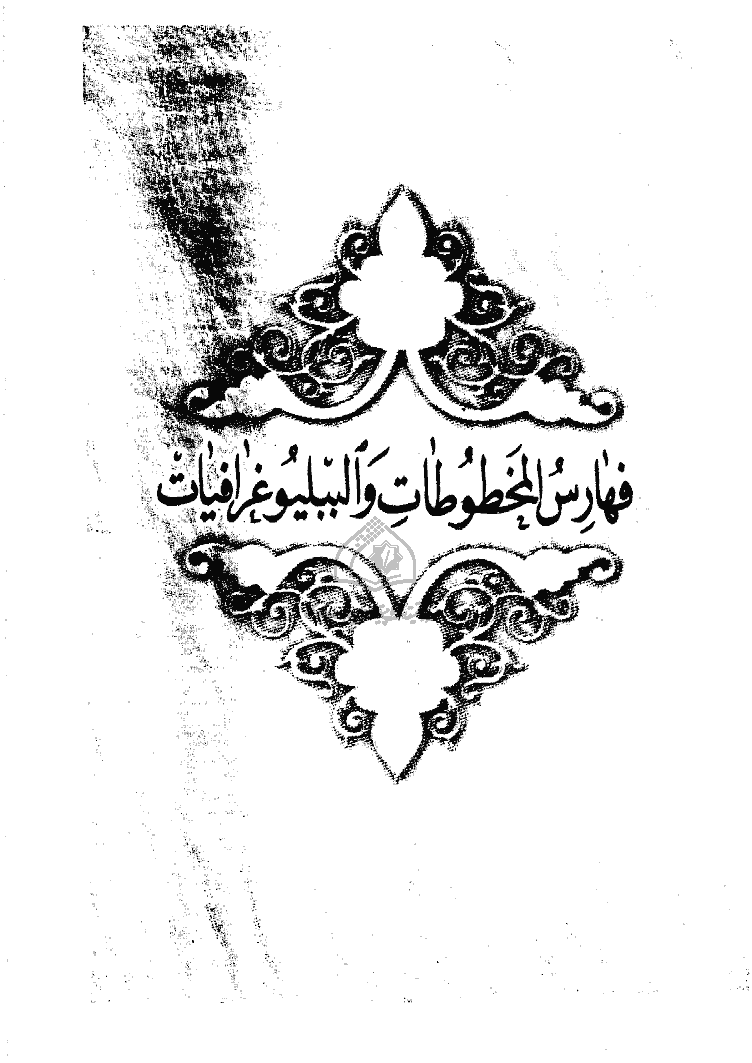 فهَارِسُ المَخَطوُطَاتِ وَالببليوُغرَافيَات